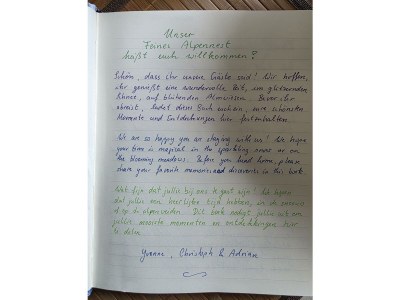 Unser
Feines Alpennest
heißt euch willkommen!
Schön, dass ihr unsere Gäste seid! Wir hoffen,
ihr genießt eine wundervolle Zeit, im glitzernden
Schnee, auf blühenden Almwiesen. Bevor ihr
abreist, ladet dieses Buch euch ein, eure schönsten
Momente und Entdeckungen hier festzuhalten.
We are so happy you are staying with us! We hope
your time is magical in the sparkling snow or on
the blooming meadows. Before you head home, please
share your favorite memories and discoveries in this book.
Wat fijn dat jullie bij ons te gast zijn! We hopen
dat jullie een heerlijke tijd hebben, in de sneeuw
of op de alpenweiden. Dit boek nodigt jullie uit om
jullie mooiste momenten en ontdekkingen
te delen.
Yvonne, Christoph & Adrian